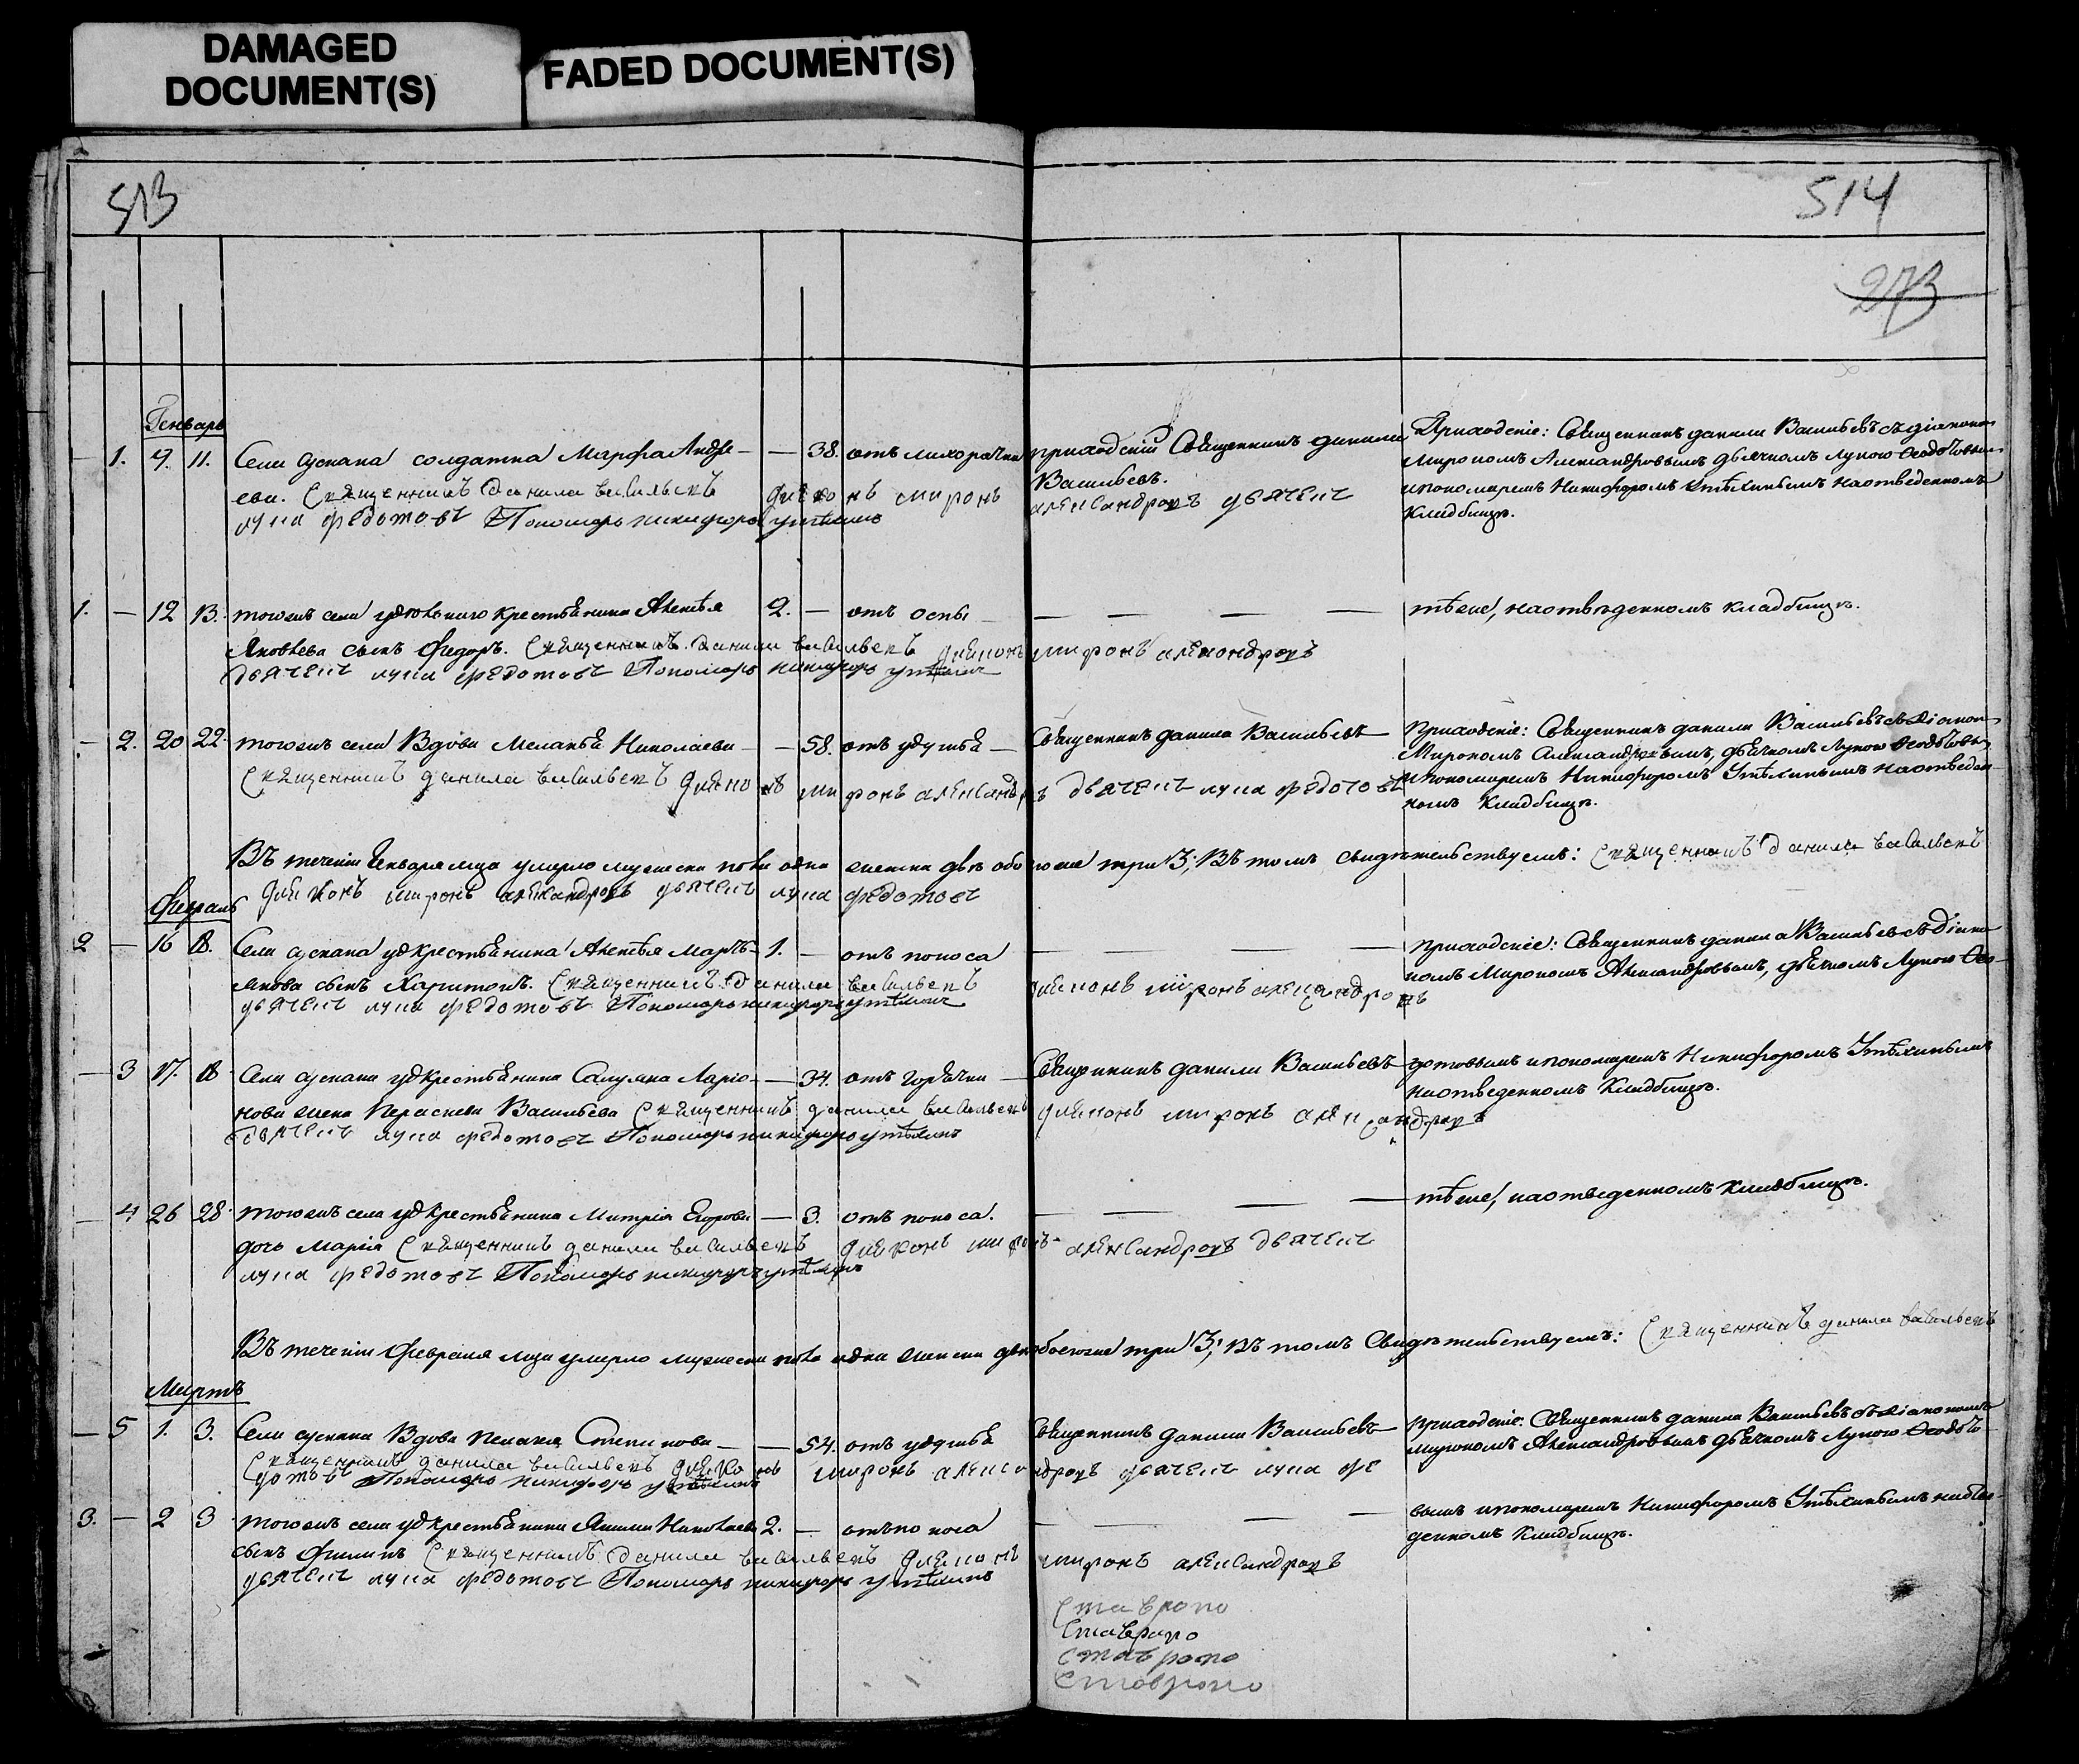 DAMAGED
DOCUMENT(S)
FADED DOCUMENT(S)
513
514
273
Генварь
— 1. 9. 11. Села солдатка Марфа Андре- — 38. отъ лихорадки приходскій Священникъ данила Приходскіе: Священникъ данила Васильевъ съ діакономъ
ева. Священникъ данила васильевъ диаконъ миронъ Васильевъ. александровъ дьячекъ Мирономъ Александровымъ дьячкомъ Лукою Ѳедотовымъ
лука федотовъ Пономарь никифоръ утѣхинъ и пономаремъ Никифоромъ Утѣхинымъ на отведенномъ
Кладбищѣ.
1. — 12 13. тогожъ села удѣльнаго крестьянина 2. — отъ оспы — — — — тѣже, на отведенномъ кладбищѣ.
Яковлева сынъ Федоръ. Священникъ данила васильевъ диаконъ миронъ александровъ
дьячекъ лука федотовъ Пономарь никифоръ утѣхинъ
— 2. 20 22. тогожъ села Вдова Меланья Николаева — — 58. отъ удушья — Священникъ данила Васильевъ Приходскіе: Священникъ данила Васильевъ съ діакономъ
Священникъ данила васильевъ диаконъ миронъ александровъ дьячекъ лука федотовъ Мирономъ Александровымъ, дьячкомъ Лукою Ѳедотовымъ
и пономаремъ Никифоромъ Утѣхинымъ на отведен-
номъ Кладбищѣ.
Въ теченіи Генваря м҃ца умерло мужеска пола одна женска двѣ обоего же три 3; Въ томъ свидѣтельствуемъ: Священникъ данила васильевъ
диаконъ миронъ александровъ дьячекъ лука федотовъ
Февраль
2 — 16 18. Села уд крестьянина 1. — отъ поноса — — — приходскіе: Священникъ данила Васильевъ съ діако-
сынъ Харитонъ. Священникъ данила васильевъ диаконъ миронъ александровъ номъ Мирономъ Александровымъ, дьячкомъ Лукою Ѳе-
дьячекъ лука федотовъ Пономарь никифоръ утѣхинъ
— 3 17. 18 Села уд крестьянина Ларіо- — 34. отъ горячки — Священникъ данила Васильевъ — дотовымъ и пономаремъ Никифоромъ Утѣхинымъ
нова жена Параскева Васильева Священникъ данила васильевъ диаконъ миронъ александровъ на отведенномъ Кладбищѣ.
дьячекъ лука федотовъ Пономарь никифоръ утѣхинъ
— 4 26 28. тогожъ села уд крестьянина Митрія Егорова — 3. отъ поноса. — — — — тѣже, на отведенномъ кладбищѣ.
дочь Марія Священникъ данила васильевъ диаконъ миронъ александровъ дьячекъ
лука федотовъ Пономарь никифоръ утѣхинъ
Въ теченіи Февраля м҃ца умерло мужеска пола одна женска двѣ обоего же три 3; Въ томъ Свидѣтельствуемъ: Священникъ данила васильевъ
Мартъ
— 5 1. 3. Села Вдова Пелагея Степанова — — 54. отъ удушья Священникъ данила Васильевъ — Приходскіе: Священникъ данила Васильевъ съ діакономъ
Священникъ данила васильевъ диаконъ миронъ александровъ дьячекъ лука фе мирономъ Александровымъ дьячкомъ Лукою Ѳедото-
дотовъ Пономарь никифоръ утѣхинъ
3. — 2 3 тогожъ села уд крестьянина Николаева 2. — отъ поноса — — — — вымъ и пономаремъ Никифоромъ Утѣхинымъ на отве-
сынъ Филипъ Священникъ данила васильевъ диаконъ миронъ александровъ денномъ Кладбищѣ.
дьячекъ лука федотовъ Пономарь никифоръ утѣхинъ
Ставропо
Ставропо
Ставропо
Ставропо